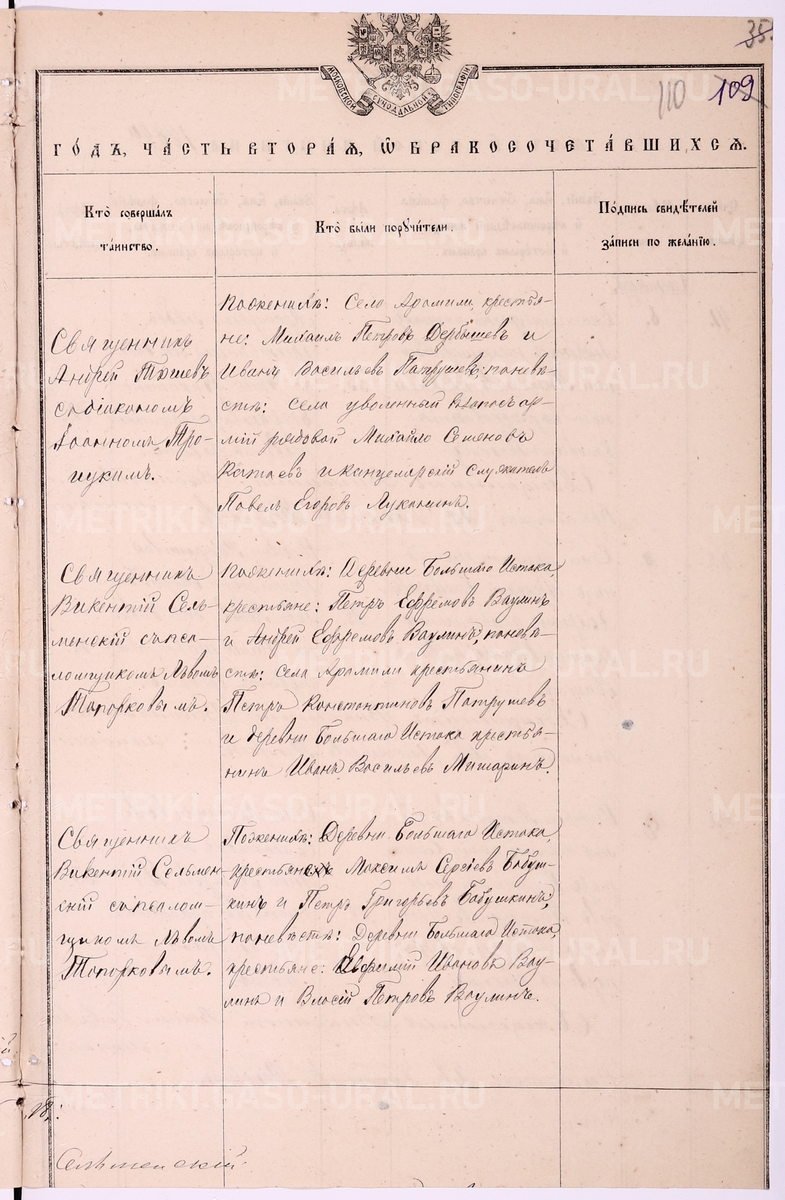 35.
МОСКОВСКОЙ СѴНОДАЛЬНОЙ ТИПОГРАФІИ
110 109
ГО́ДЪ, ЧА́СТЬ ВТОРА́Ѧ, Ѡ҆ БРАКОСОЧЕТА́ВШИХСѦ.
Кто̀ соверша́лъ
та́инство.
Кто̀ бы́ли порꙋчи́тели.
По́дпись свидѣ́телей
за́писи по жела́нїю.
Священникъ
Андрей Тяшевъ
съ діакономъ
Іоанномъ Тро-
ицкимъ.
По женихѣ: Села Арамили, крестья-
не: Михаилъ Петровъ Дербышевъ и
Иванъ Васильевъ Патрушевъ; по невѣ-
стѣ: села уволенный въ запасъ ар-
мій рядовой Михайло Семеновъ
Катаевъ и канцелярскій служитель
Павелъ Егоровъ Луканинъ.
Священникъ
Викентій Сель-
менскій съ псa-
ломщикомъ Львомъ
Топорковымъ.
По женихѣ: Деревни Большаго Истока,
крестьяне: Петръ Ефремовъ Ваулинъ
и Андрей Ефремовъ Ваулинъ; по невѣ-
стѣ: села Арамили крестьянинъ
Петръ Константиновъ Патрушевъ
и деревни Большаго Истока крестья-
нинъ Иванъ Васильевъ Мишаринъ.
Священникъ
Викентій Сельмен-
скій съ псалом-
щикомъ Львомъ
Топорковымъ.
По женихѣ: Деревни Большаго Истока,
крестьяне Максимъ Сергіевъ Бабуш-
кинъ и Петръ Григорьевъ Бабушкинъ;
по невѣстѣ: Деревни Большаго Истока,
крестьяне: Ивановъ Вау-
линъ и Власій Петровъ Ваулинъ.
Сельменскій
METRIKI.GASO-URAL.RU